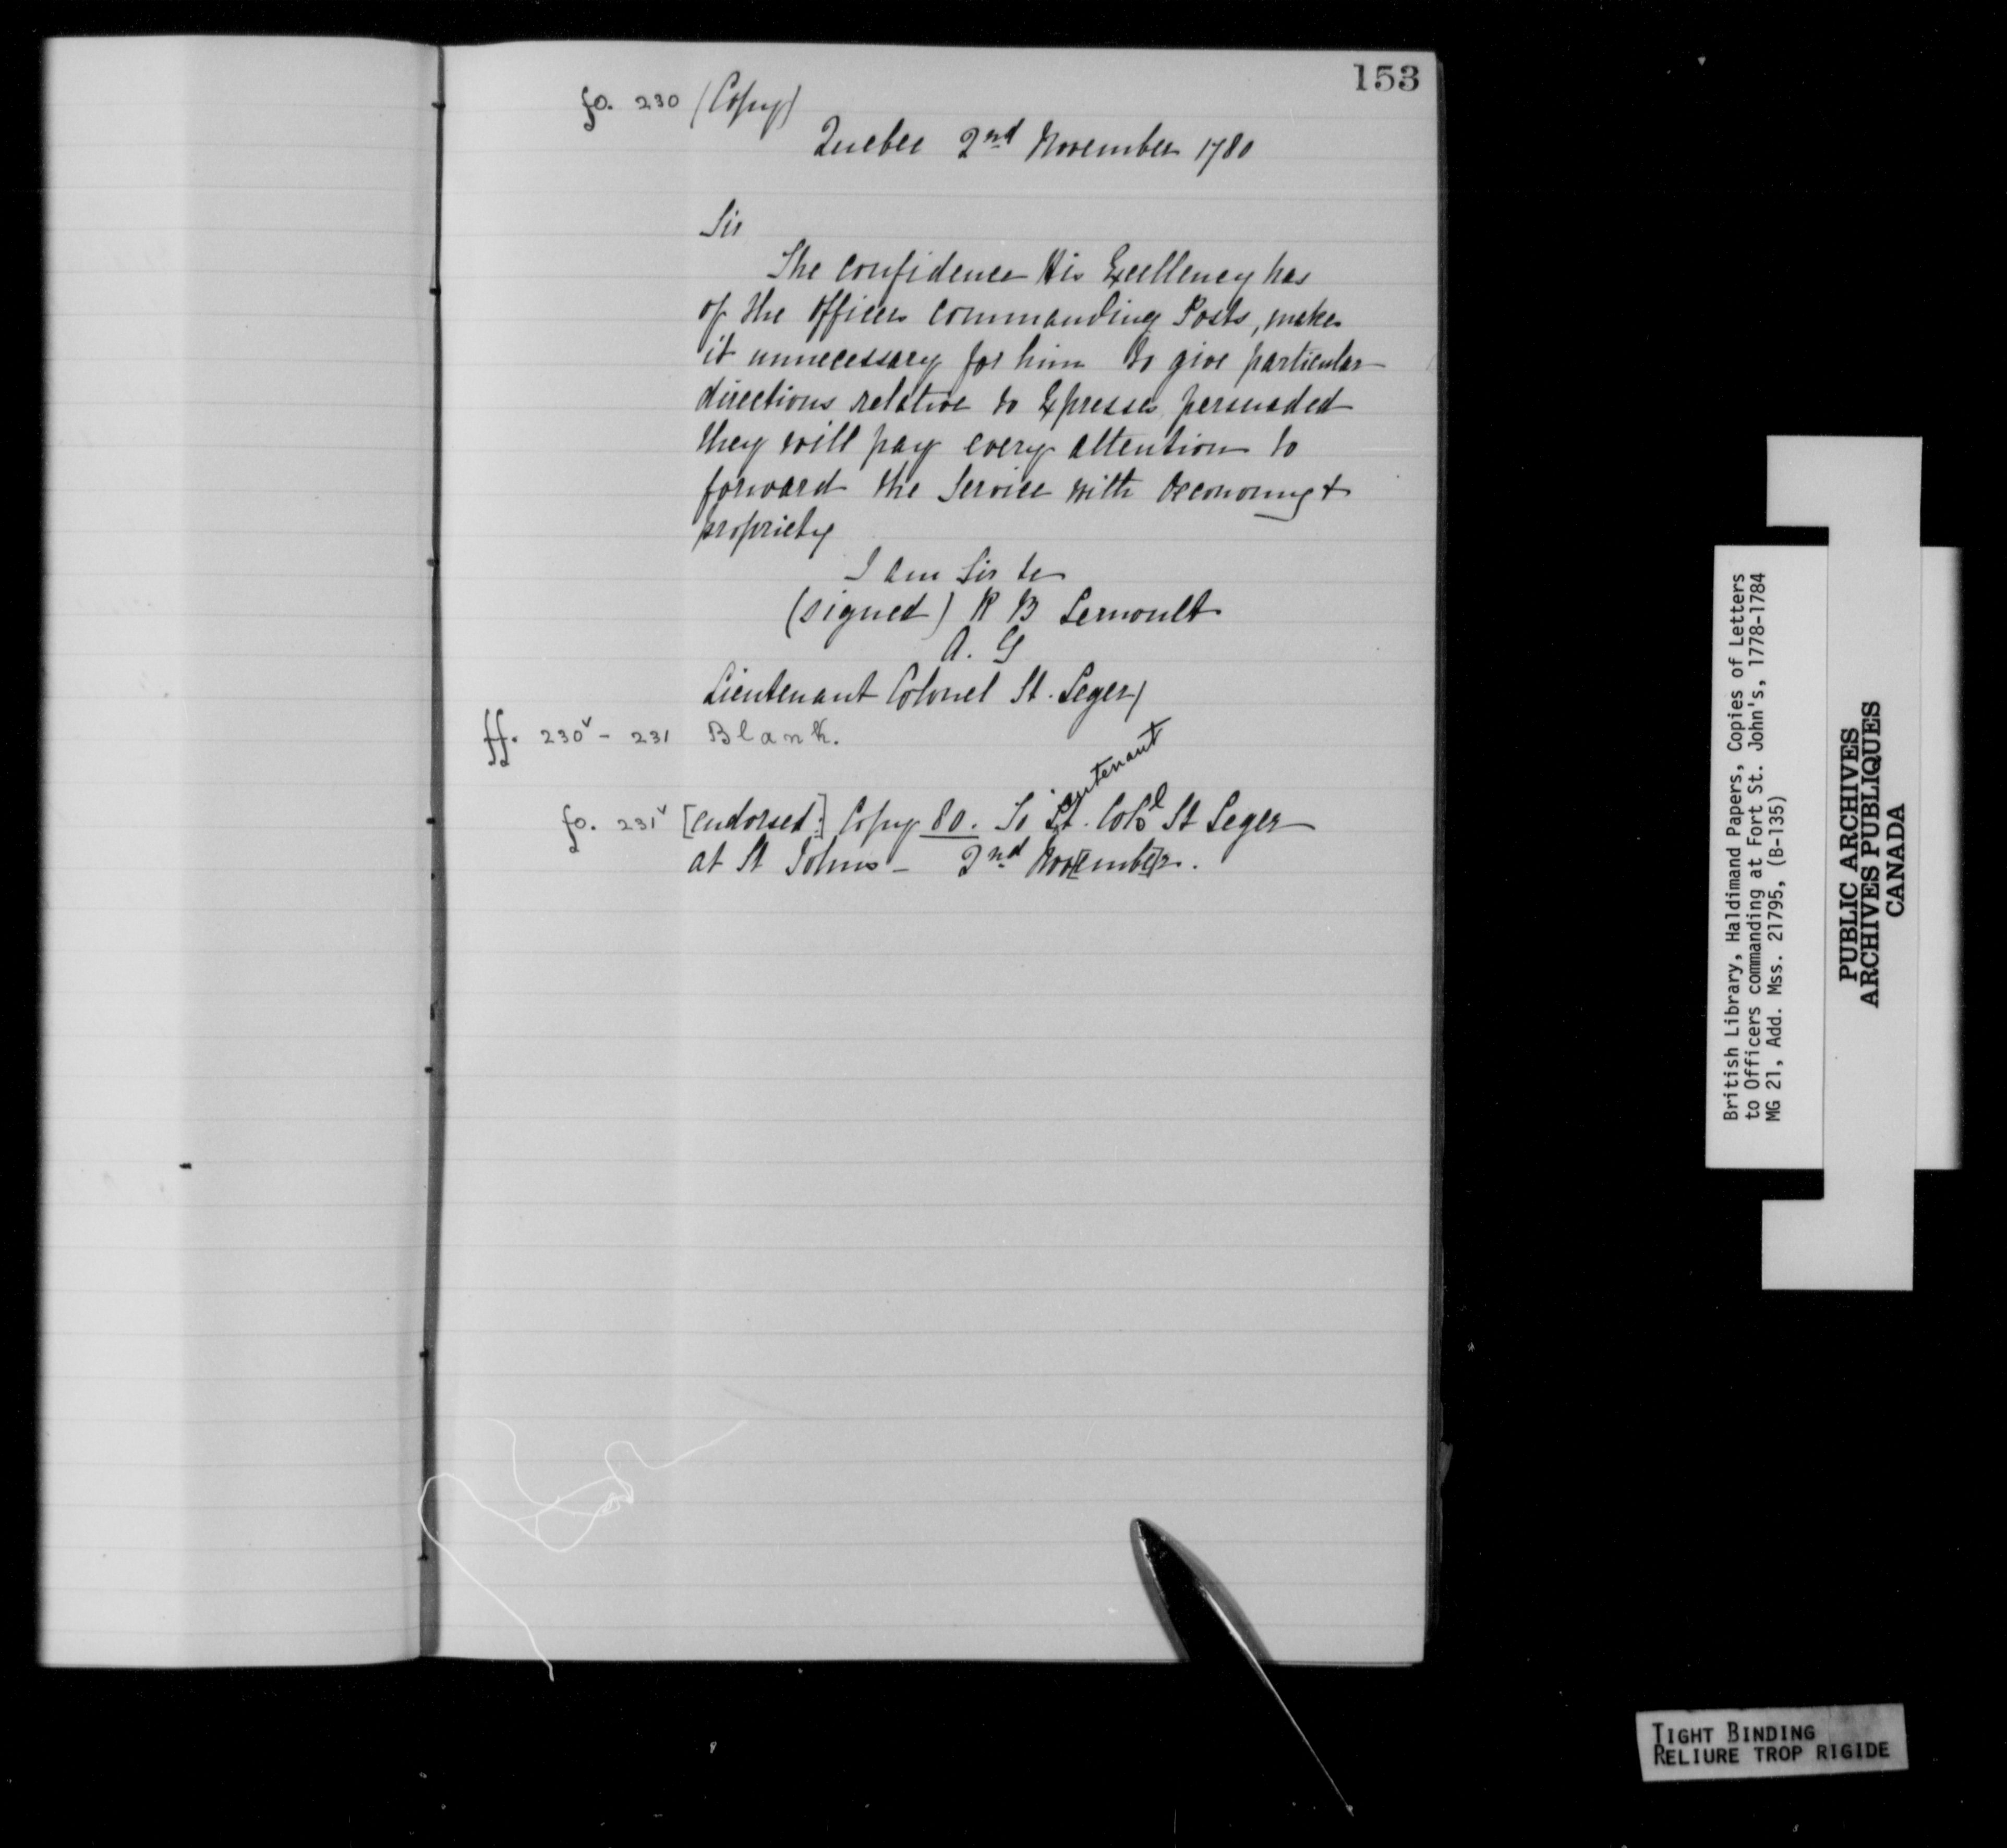 153
fo. 230 (Copy)
Quebec 2nd November 1780
Sir
The confidence His Excellency has
of the Officers commanding Posts, makes
it unnecessary for him to give particular
directions relative to Expresses, persuaded
they will pay every attention to
forward the Service with Oeconomy &
propriety
I am Sir &c
(signed) R B Lernoult
A. G
Lieutenant Colonel St. Leger)
ff. 230v - 231 Blank.
fo. 231v [endorsed:] Copy 80. To Lieutenant Coll St Leger
at St Johns - 2nd Nov[embe]r.
British Library, Haldimand Papers, Copies of Letters
to Officers commanding at Fort St. John's, 1778-1784
MG 21, Add. Mss. 21795, (B-135)
PUBLIC ARCHIVES
ARCHIVES PUBLIQUES
CANADA
TIGHT BINDING
RELIURE TROP RIGIDE